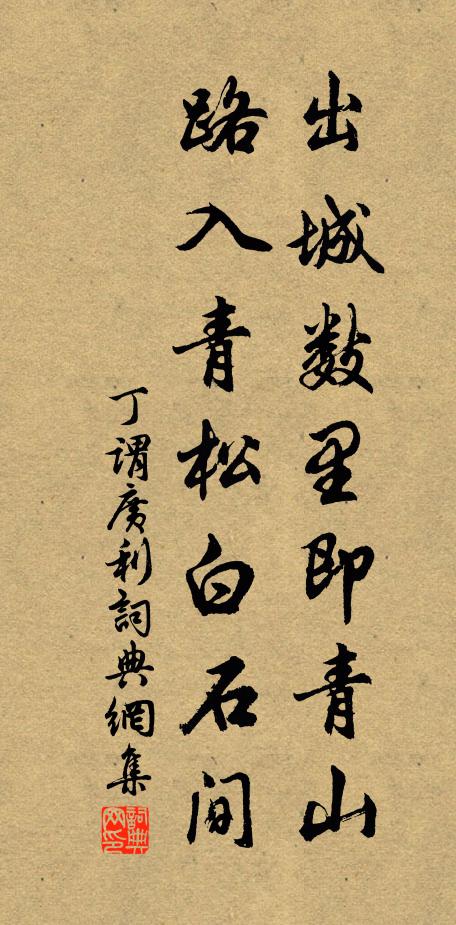 出城数里即青山
路入青松白石间
丁謂廣利詞典網集
詞典网印